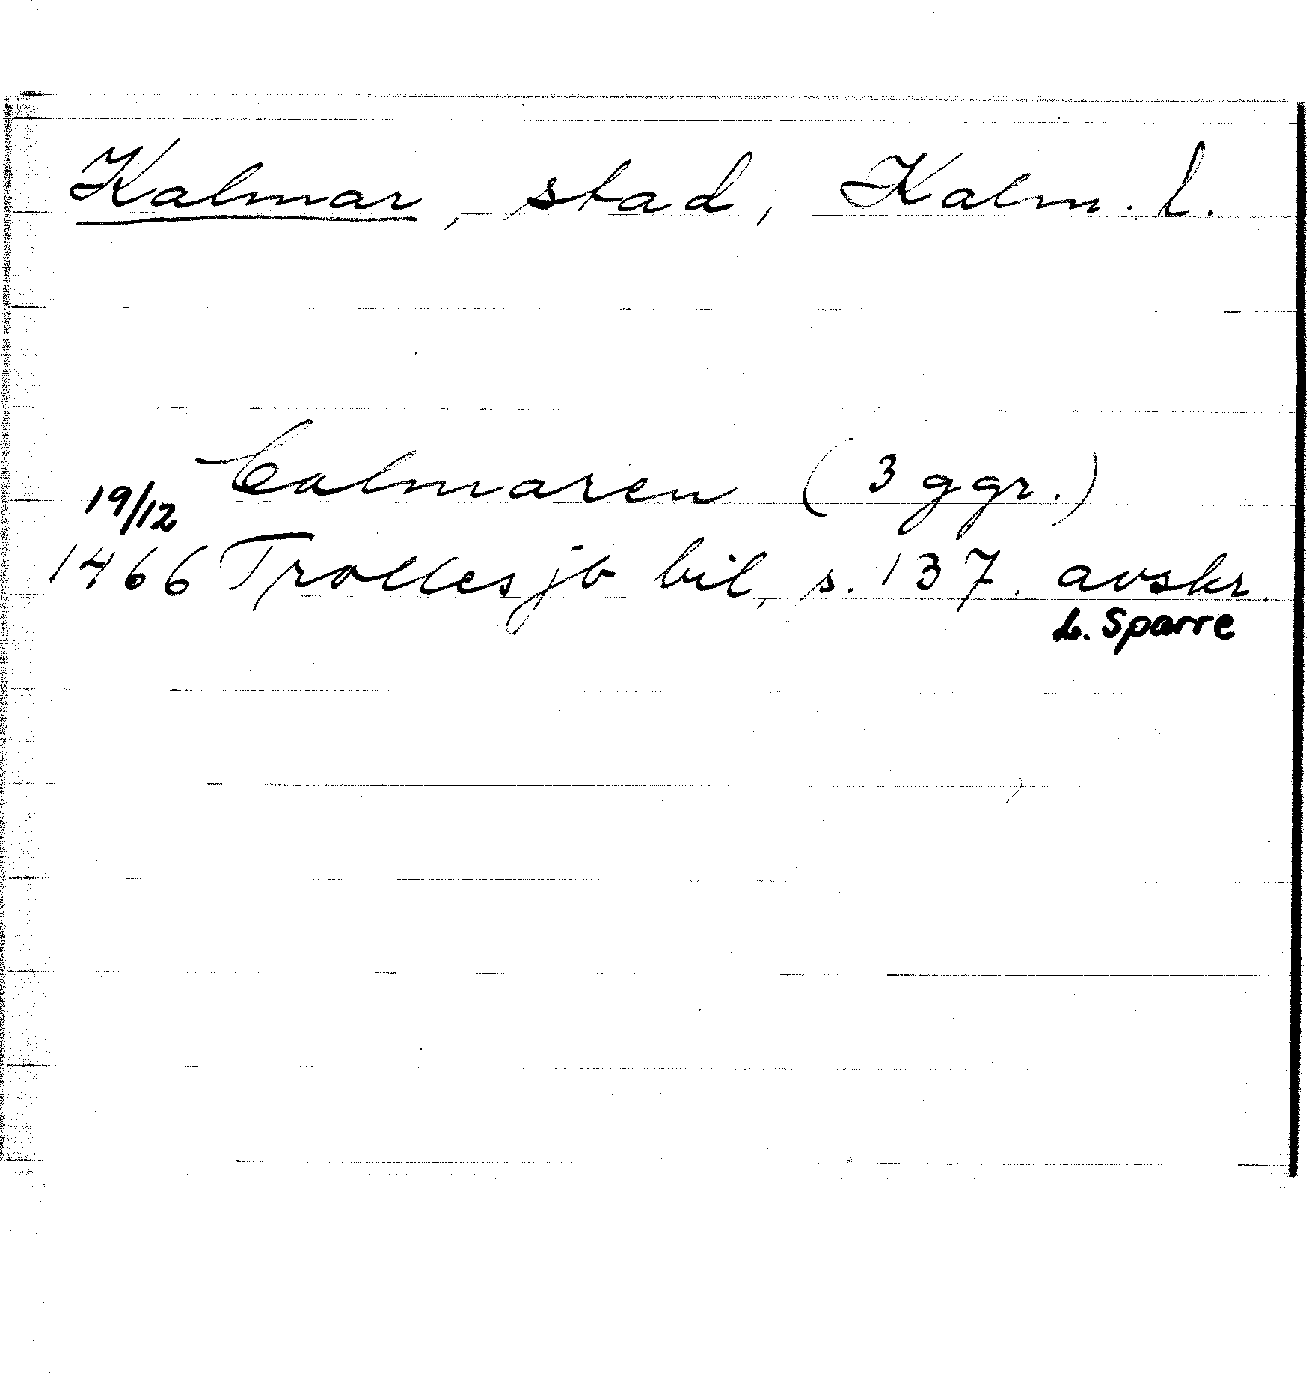 Kalmar, stad, Kalm. l.
Calmaren (3 ggr.)
19/12
1466 Trolles jb bil, s. 137. avskr.
L. Sparre